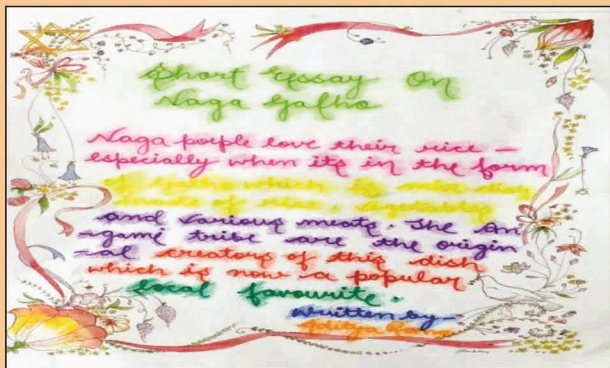 Short Essay On
Naga Galho
Naga people love their rice –
especially when its in the form
of galho which is
of rice vegetables
and various meats. The An
-gami tribe are the origin
-al creators of this dish
which is now a popular
local favourite.
written by –
Aditya